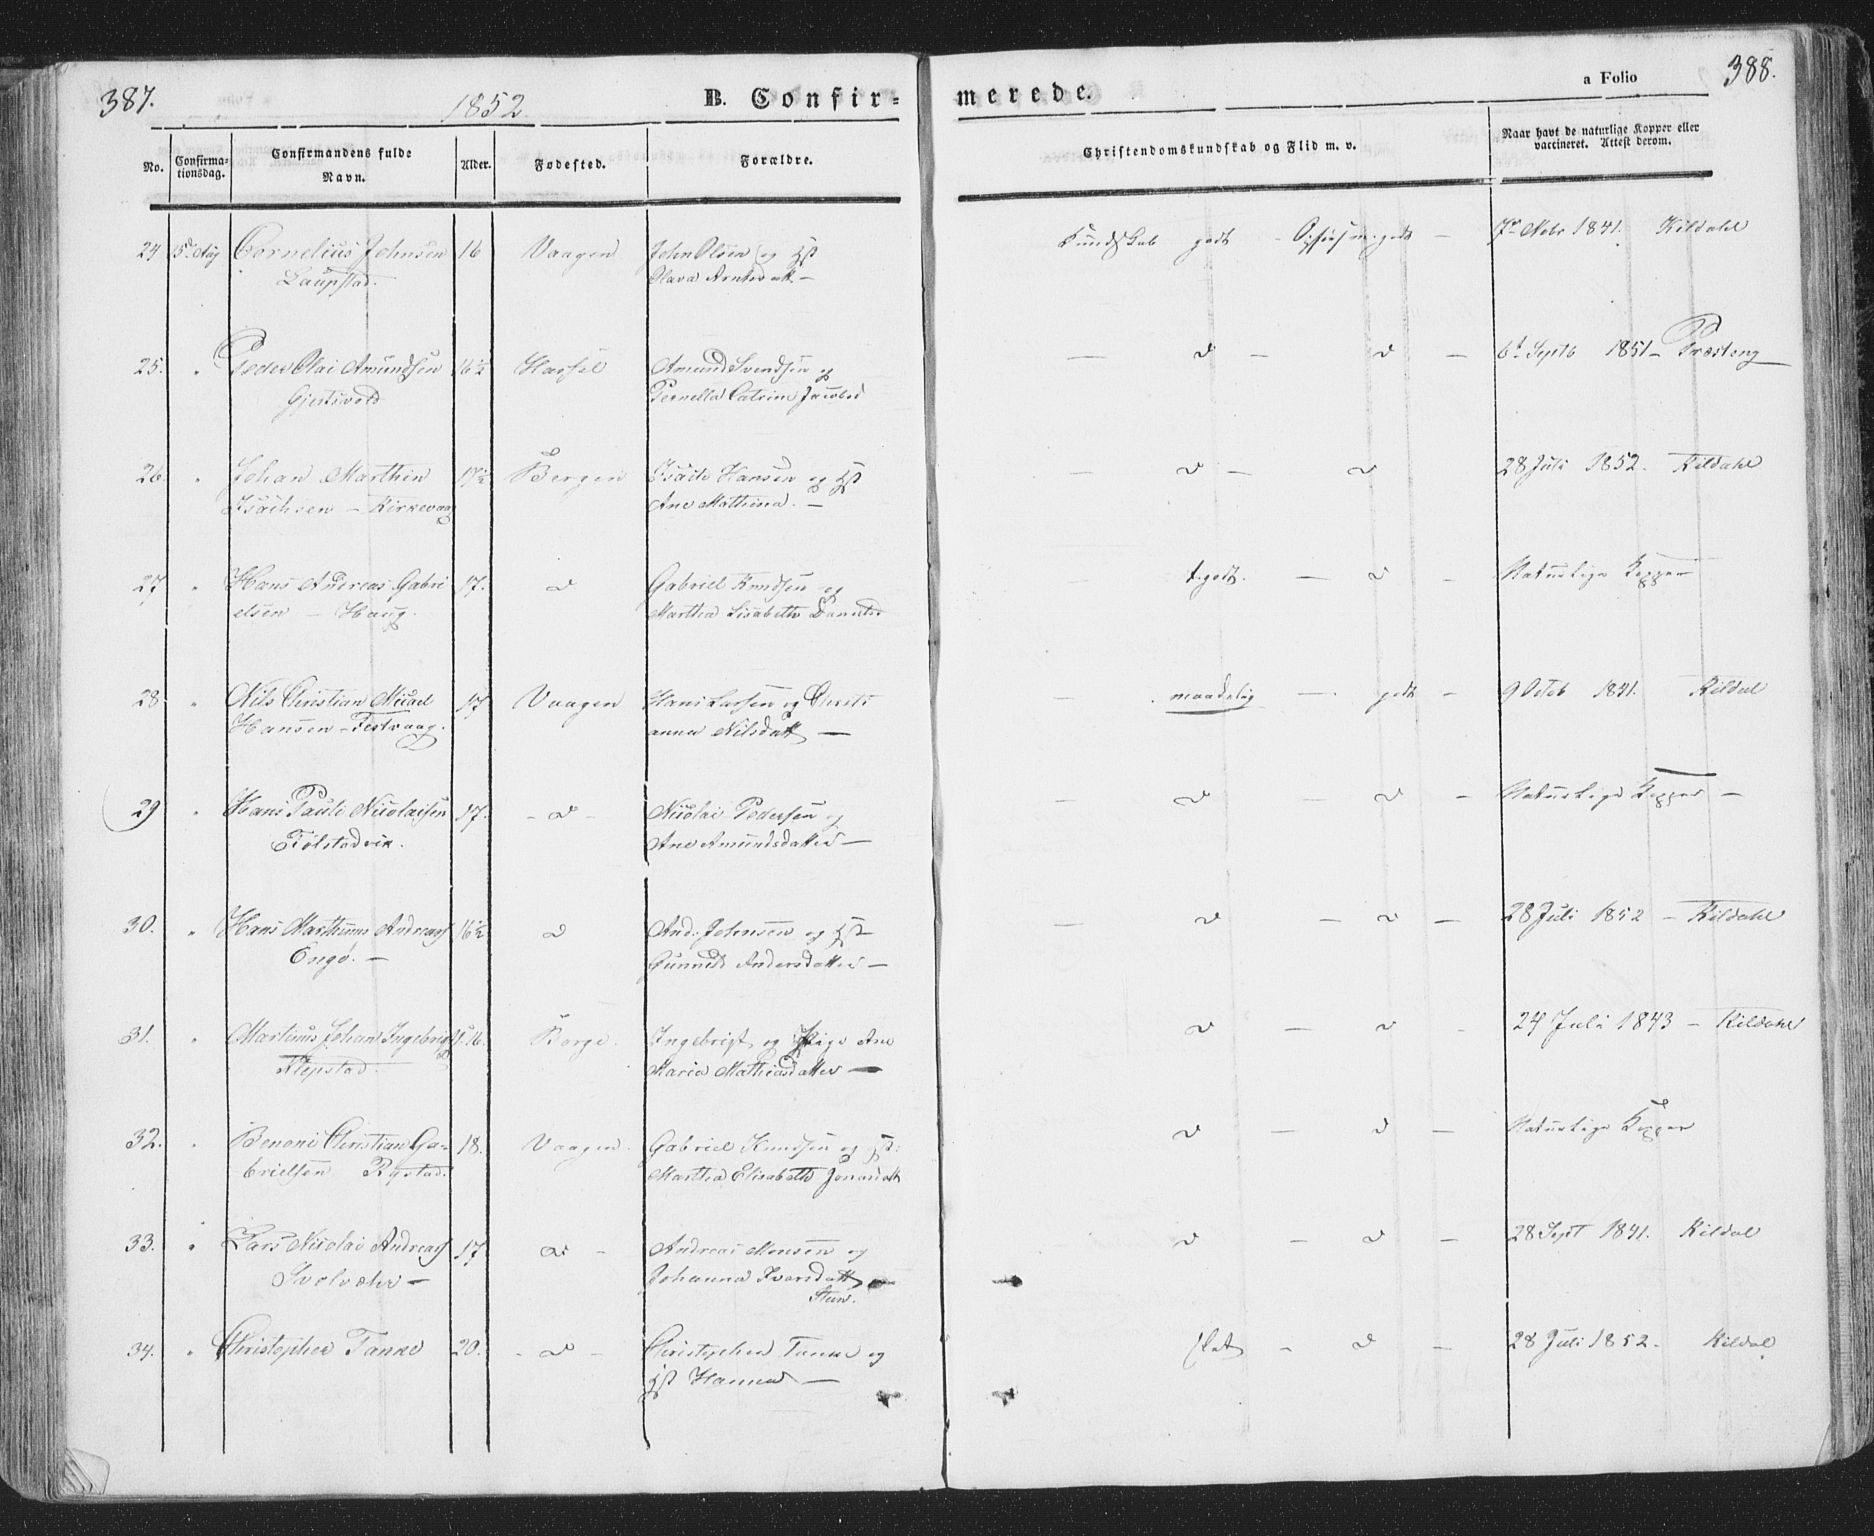 387. 1852 B. Confir= merede. a Folio 388.
No. Confirma-tionsdag. Confirmandens fulde Navn. Alder. Fødested. Forældre. Christendomskundskab og Flid m. v. Naar havt de naturlige Kopper eller vaccineret. Attest derom.
24 15d Aug Cornelius Johnsen 16 Vaagen John Olsen og Kundskab godt - godt - 1841. Kildahl
Laupstad. Olava
25. " Peder Olai Amundsen 16½ Hassel Amund Svendsen og — d — d — 6t Septb 1851 - Præsteng
Gjertsvold Pernella Catrine Jacobsd
26. " Johan Marthin 17½ Bergen Isach Hansen og — d — d 28 Juli 1852. Kildahl
Isachsen - Kirkevaag Ane Mathina. —
27 " Hans Andreas Gabri 17. d Gabriel Knudsen og t. godt. — d — Naturlige Kopper
elsen - Haug. Martha Lisabeth
28 " Nils Christian Micael 17 Vaagen Hans Larsen og Christi — maadelig — godt - 9 Octob 1841. Kildal
Hansen - Festvaag. anna Nilsdatt —
29 " Hans Pauli Nicolaisen 17. - d - Nicolai Pedersen og — d — d — Naturlige Kopper —
Følstadvik. Ane Amundsdatter —
30. " Hans Marthinus Andreas 16½ d And. Johnsen og — d — d — 28 Juli 1852 - Kildahl
Engø. — Gunnild Andersdatter —
31. " Martinus Johan Ingebrigt 16. Borge. Ingebrigt og Pige Ane d — d - 24 Juli 1843 - Kildahl
Klepstad. Maria Mathiasdatter —
32. " Benoni Christian Ga- 18. Vaagen. Gabriel Knudsen og d — d — Naturlige Kopper
brielsen Rystad. Martha Elisabeth Jonasdatt
33. " Lars Nicolai Andreas 17 d - Andreas Monsen og d — d — 28 Sept 1841. Kildal
Svolvæhr — Johanna Iversdatt
34. " Christopher Tanke 20. - d - Christopher Tanke og slet - d — 28 Juli 1852. Kildal
Hanna —